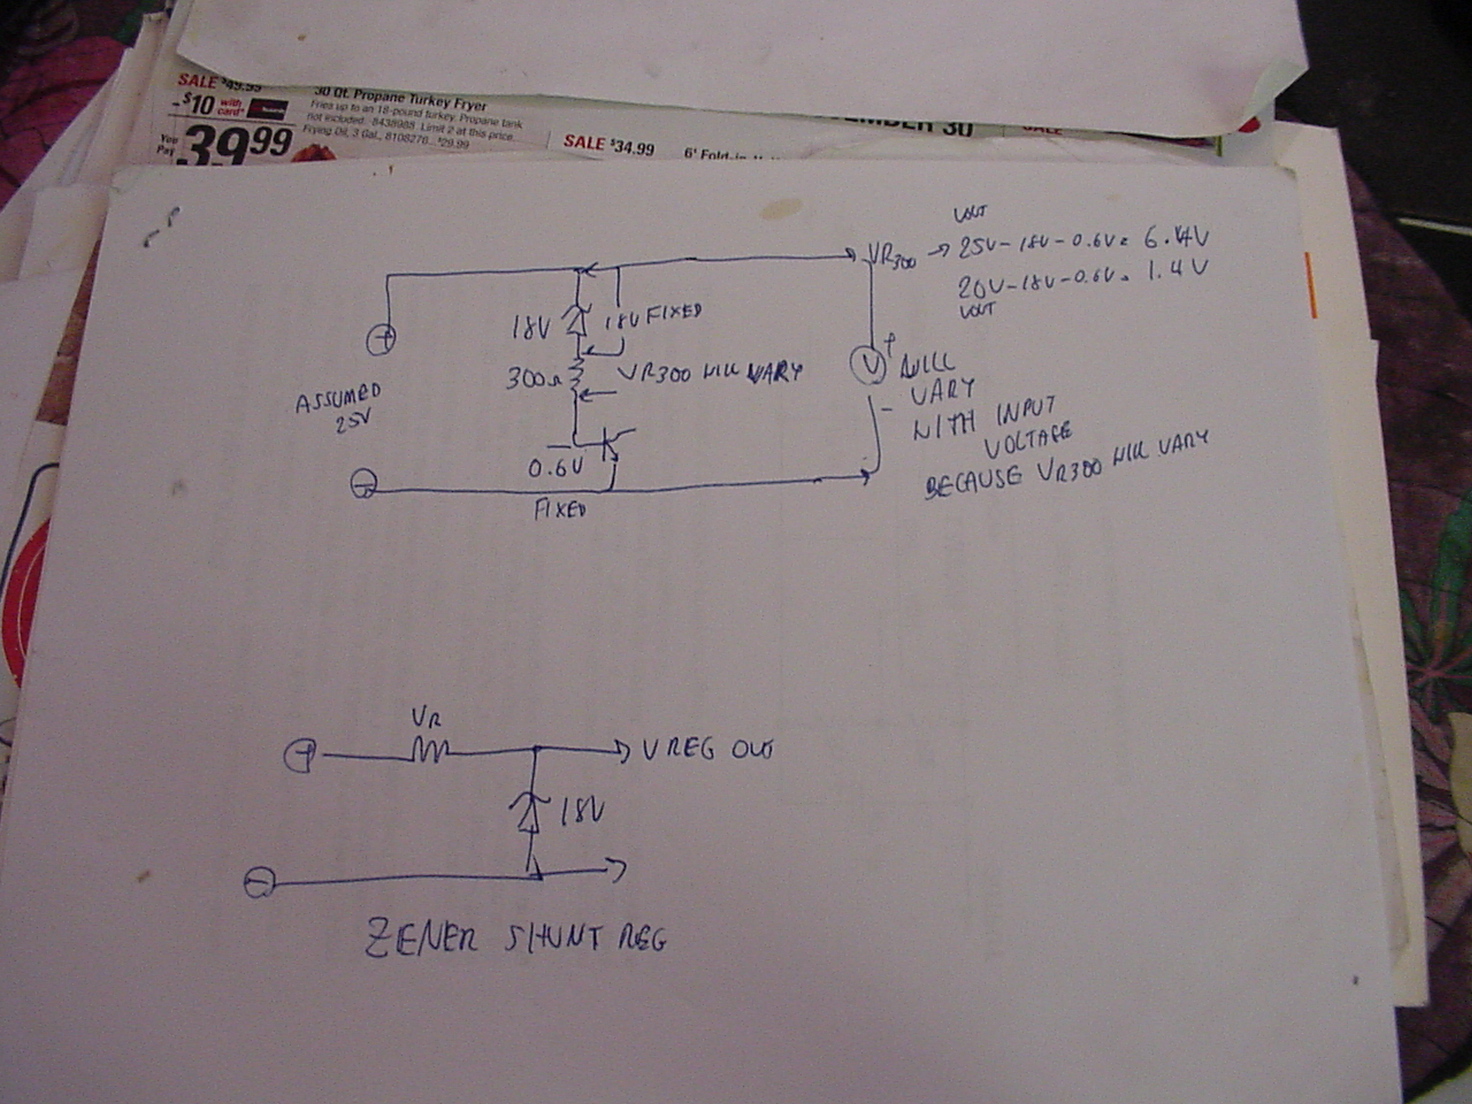 SALE $49.99
-$10 with card*
You Pay 39.99
30 Qt. Propane Turkey Fryer
Fries up to an 18-pound turkey. Propane tank
not included. 8438988. Limit 2 at this price.
Frying Oil, 3 Gal., 8108276... $29.99
SALE $34.99
30
SALE
VOUT
VR300 → 25V-18V-0.6V= 6.4V
20V-18V-0.6V= 1.4V
VOUT
18V
18V FIXED
300Ω
VR300 WILL VARY
+
ASSUMED
25V
0.6V
-
FIXED
V
+
-
WILL
VARY
WITH INPUT
VOLTAGE
BECAUSE VR300 WILL VARY
VR
+
V REG OUT
18V
-
ZENER SHUNT REG